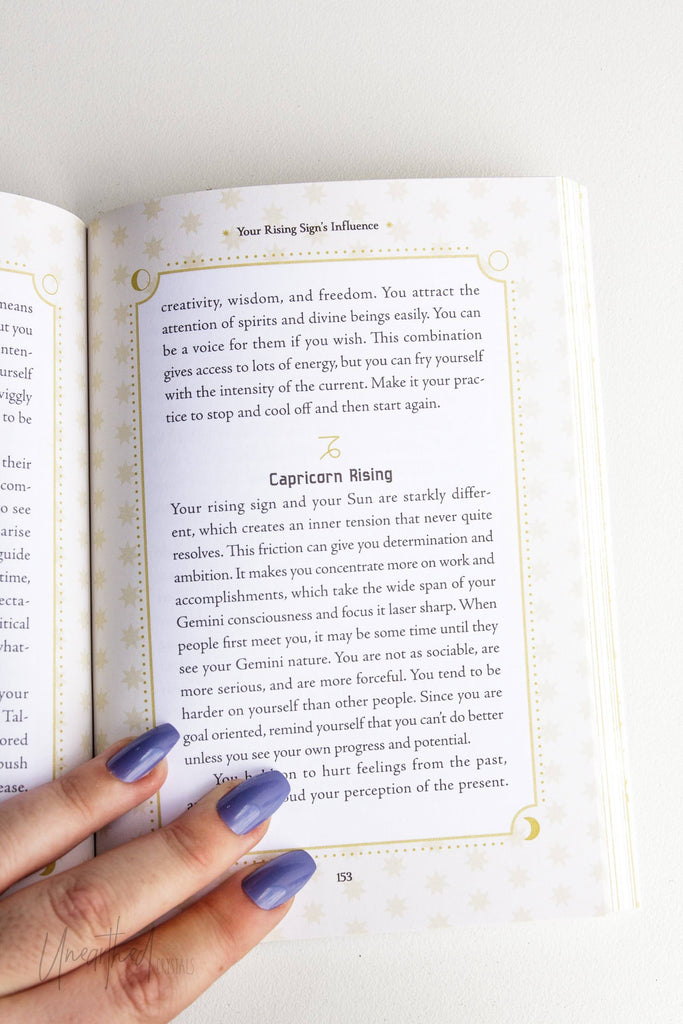 means
ut you
inten-
urself
wiggly
to be
their
com-
o see
arise
guide
time,
ecta-
itical
what-
your
Tal-
ored
push
ease.
Your Rising Sign's Influence
creativity, wisdom, and freedom. You attract the
attention of spirits and divine beings easily. You can
be a voice for them if you wish. This combination
gives access to lots of energy, but you can fry yourself
with the intensity of the current. Make it your prac-
tice to stop and cool off and then start again.
Capricorn Rising
Your rising sign and your Sun are starkly differ-
ent, which creates an inner tension that never quite
resolves. This friction can give you determination and
ambition. It makes you concentrate more on work and
accomplishments, which take the wide span of your
Gemini consciousness and focus it laser sharp. When
people first meet you, it may be some time until they
see your Gemini nature. You are not as sociable, are
more serious, and are more forceful. You tend to be
harder on yourself than other people. Since you are
goal oriented, remind yourself that you can't do better
unless you see your own progress and potential.
You on to hurt feelings from the past,
your perception of the present.
153
Unearthed CRYSTALS